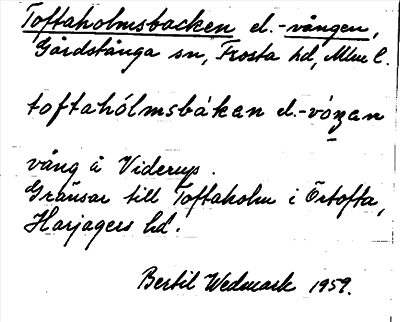 Toftaholmsbacken el. -vången,
Gårdstånga sn, Frosta hd, Mlm l.
toftahólmsbákan el. -vóŋan
vång å Viderup.
Gränsar till Toftaholm i Örtofta,
Harjagers hd.
Bertil Wedmark 1959.